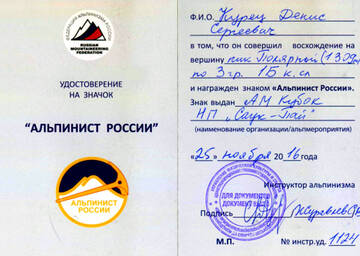 ФЕДЕРАЦИЯ АЛЬПИНИЗМА РОССИИ
RUSSIAN
MOUNTAINEERING
FEDERATION
УДОСТОВЕРЕНИЕ
НА ЗНАЧОК
"АЛЬПИНИСТ РОССИИ"
АЛЬПИНИСТ
РОССИИ
Ф.И.О. Курец Денис
Сергеевич
в том, что он совершил восхождение на
вершину пик Полярной (1309
по 3 гр. 1Б к.сл
и награжден знаком «Альпинист России».
Знак выдан АМ Кубок
НП „Саук-Тай"
(наименование организации/альпмероприятия)
«25» ноября 2016 года
Инструктор альпинизма
ДЛЯ ДОКУМЕНТОВ
Подпись
М.П. № инстр.уд. 1124